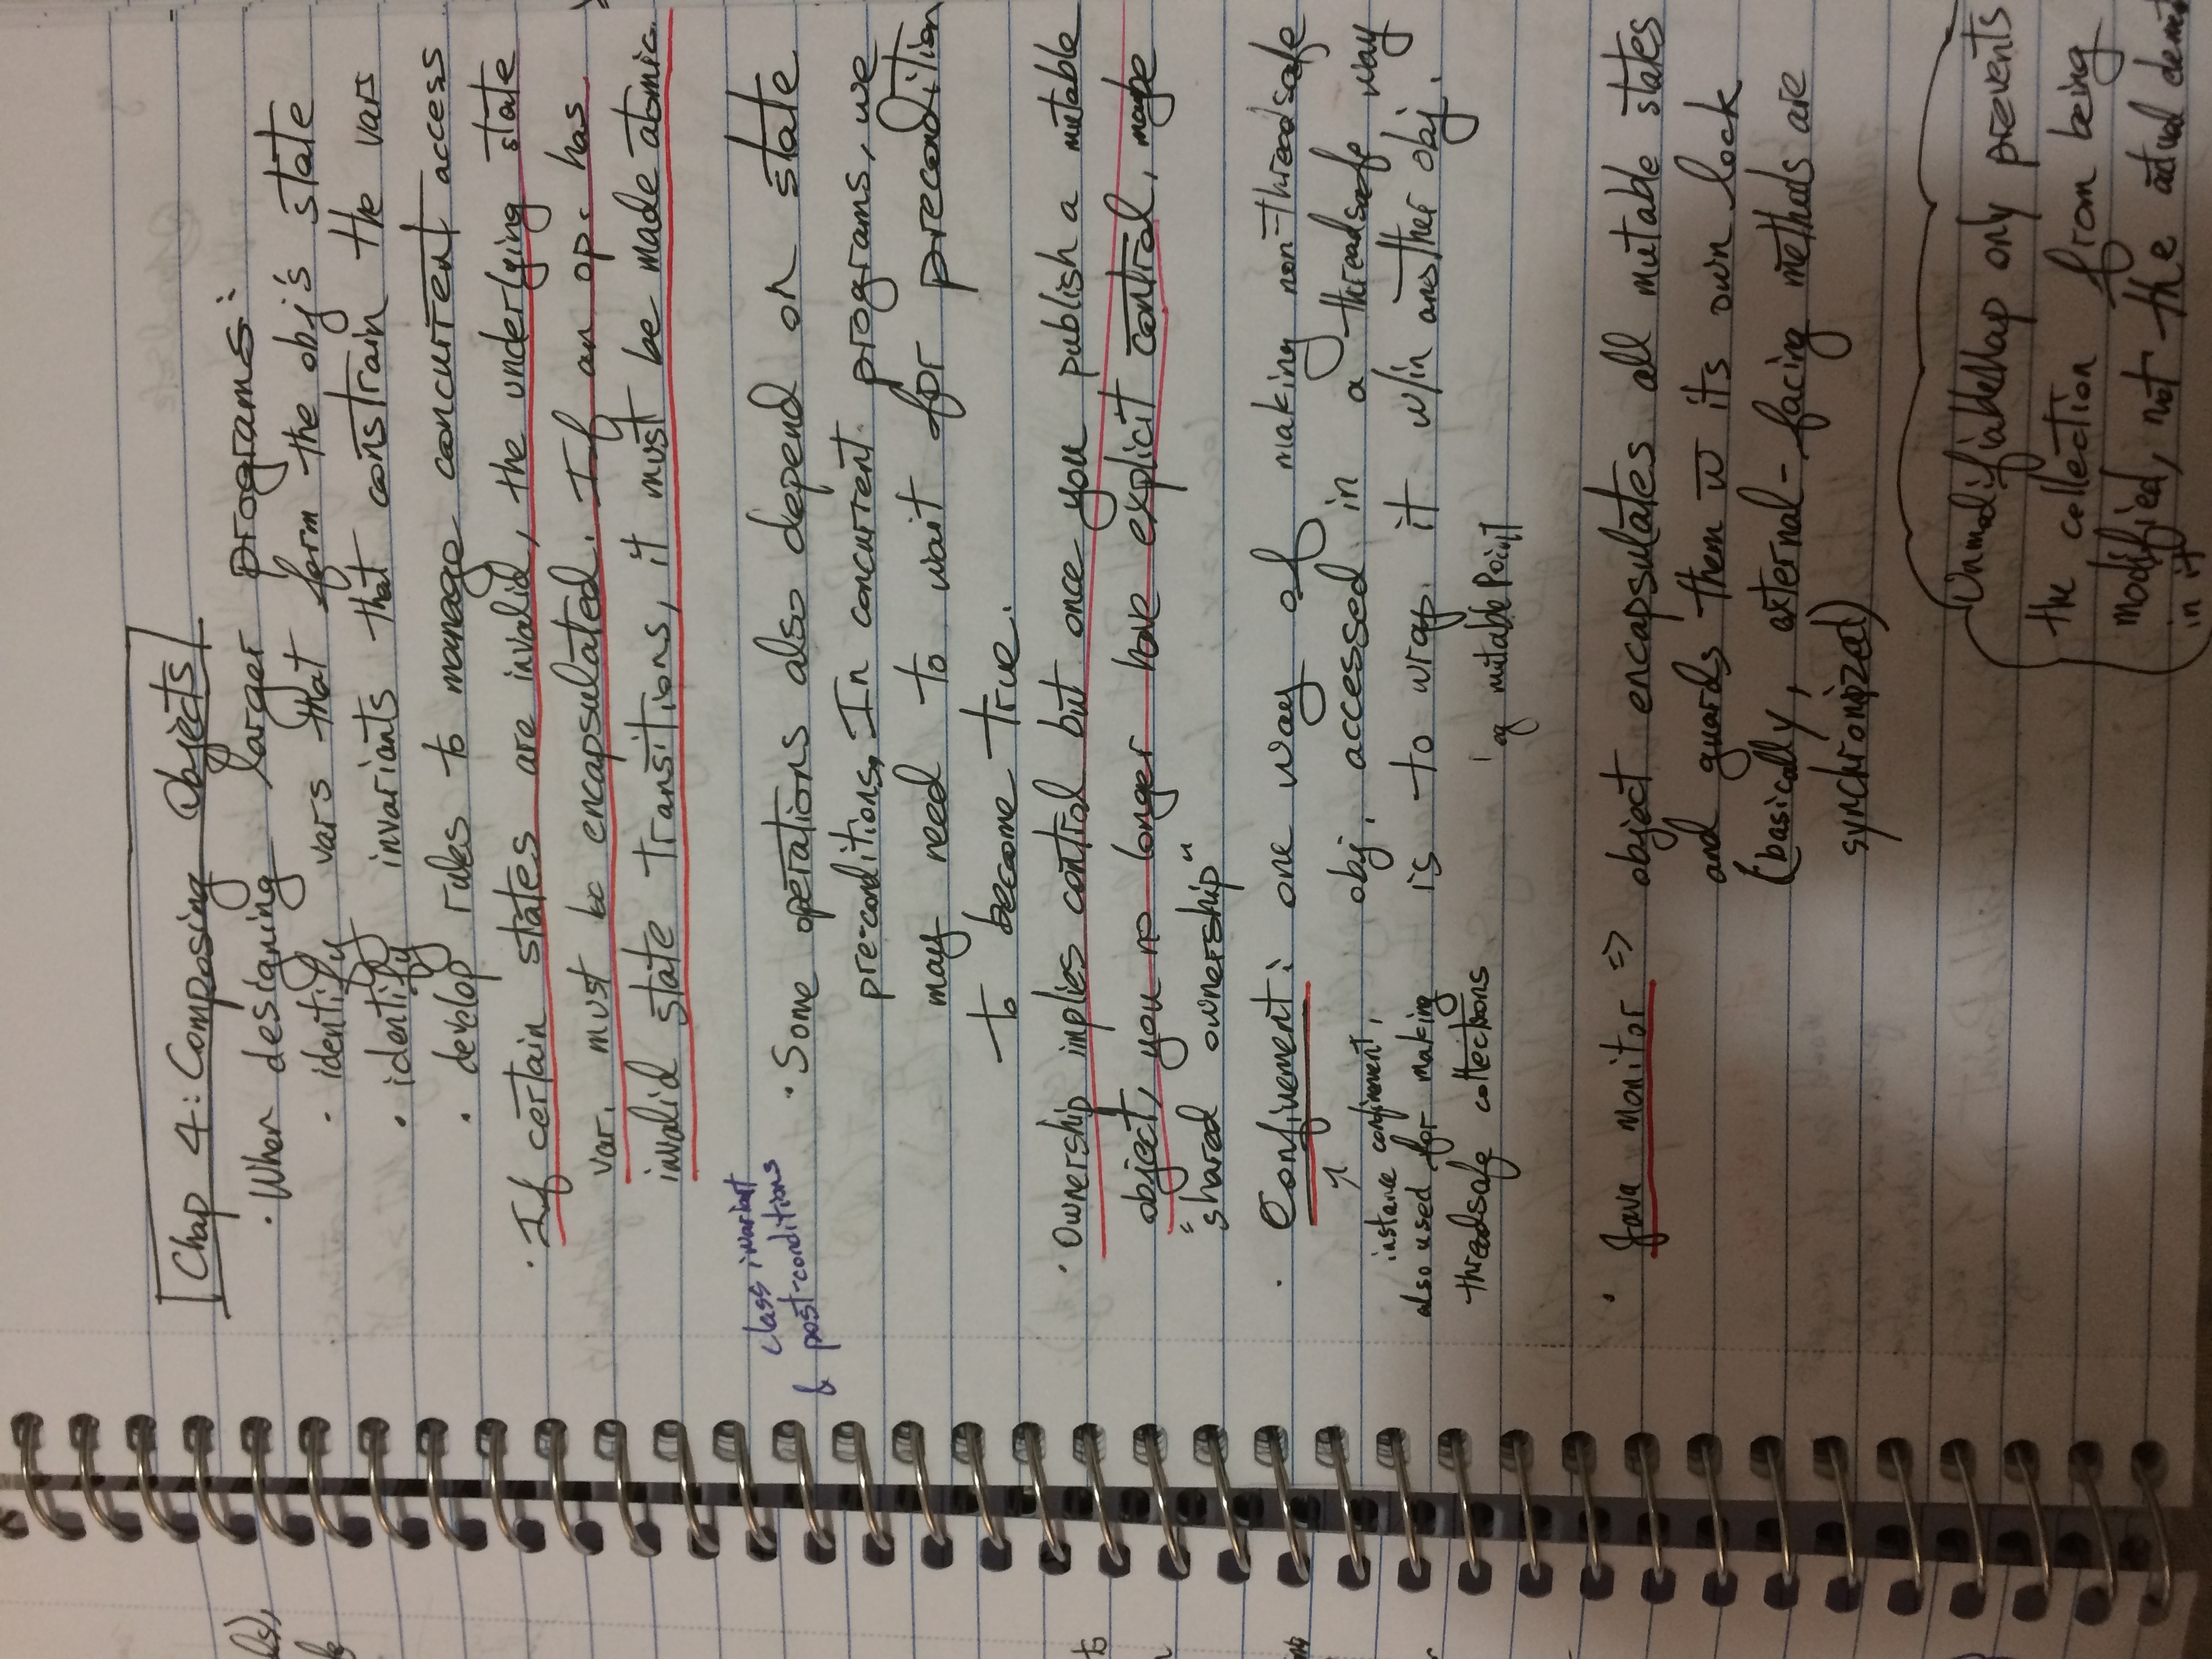 Chap 4: Composing Objects
· When designing larger programs:
· identify vars that form the obj's state
· identify invariants that constrain the vars
· develop rules to manage concurrent access
· If certain states are invalid, the underlying state
var. must be encapsulated. If an op. has
invalid state transitions, it must be made atomic.
class invariant
& post-conditions
· Some operations also depend on state
pre-conditions. In concurrent programs, we
may need to wait for precondition
to become true.
· Ownership implies control but once you publish a mutable
object, you no longer have explicit control, maybe
"shared ownership"
· Confinement: one way of making non-threadsafe
obj. accessed in a threadsafe way
is to wrap it w/in another obj.
instance confinement,
also used for making
threadsafe collections
eg mutablePoint
· Java monitor => object encapsulates all mutable states
and guards them w its own lock
(basically, external-facing methods are
synchronized)
UnmodifiableMap only prevents
the collection from being
modified, not the actual
in it